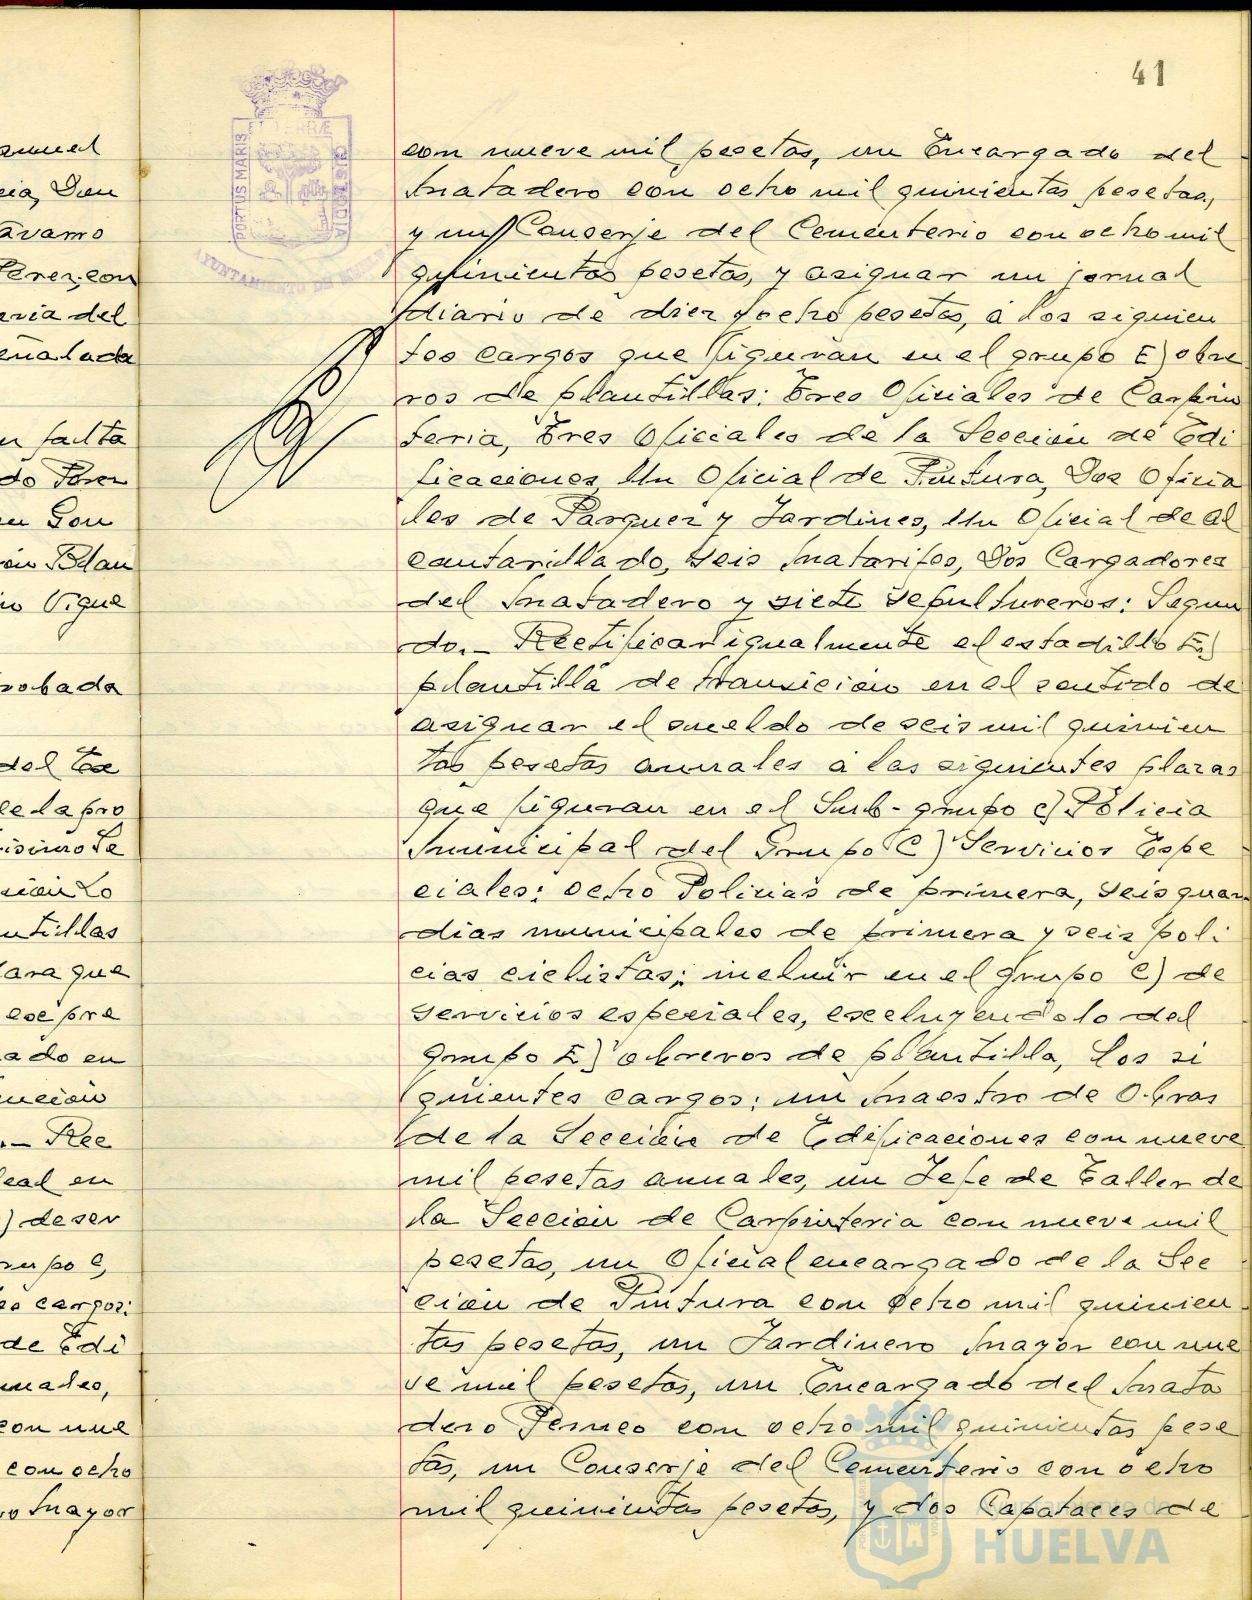 41
PORTUS MARIS
TERRÆ
CUSTODIA
AYUNTAMIENTO DE HUELVA
con nueve mil pesetas, un Encargado del
Matadero con ocho mil quinientas pesetas,
y un Conserje del Cementerio con ocho mil
quinientas pesetas, y asignar un jornal
diario de diez y ocho pesetas, a los siguien
tes cargos que figuran en el grupo E) obre
ros de plantillas: Tres Oficiales de Carpin
teria, Tres Oficiales de la Sección de Edi
ficaciones, Un Oficial de Pintura, Dos Oficia
les de Parques y Jardines, Un Oficial de al
cantarillado, seis Matarifes, Dos Cargadores
del Matadero y siete sepultureros: Segun
do.- Rectificar igualmente el estadillo E)
plantilla de transición en el sentido de
asignar el sueldo de seis mil quinien
tas pesetas anuales a las siguientes plazas
que figuran en el Sub-grupo c) Policia
Municipal del Grupo C) Servicios Espe
ciales: ocho Policias de primera, seis guar
dias municipales de primera y seis poli
cias ciclistas; incluir en el grupo C) de
servicios especiales, escluyendolo del
grupo E) obreros de plantilla, los si
guientes cargos: un Maestro de Obras
de la Sección de Edificaciones con nueve
mil pesetas anuales, un Jefe de Taller de
la Sección de Carpinteria con nueve mil
pesetas, un Oficial encargado de la Sec
ción de Pintura con ocho mil quinien
tas pesetas, un Jardinero Mayor con nue
ve mil pesetas, un Encargado del Mata
dero con ocho mil quinientas pese
tas, un Conserje del Cementerio con ocho
mil quinientas pesetas, y dos Capataces de
Ayuntamiento de
HUELVA